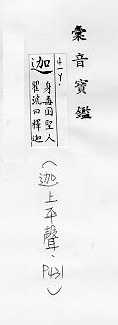 彙音寶鑑
迦
ㄐㄧㄚ
身毒國聖人
瞿流曰釋迦
(迦上平聲、P431)